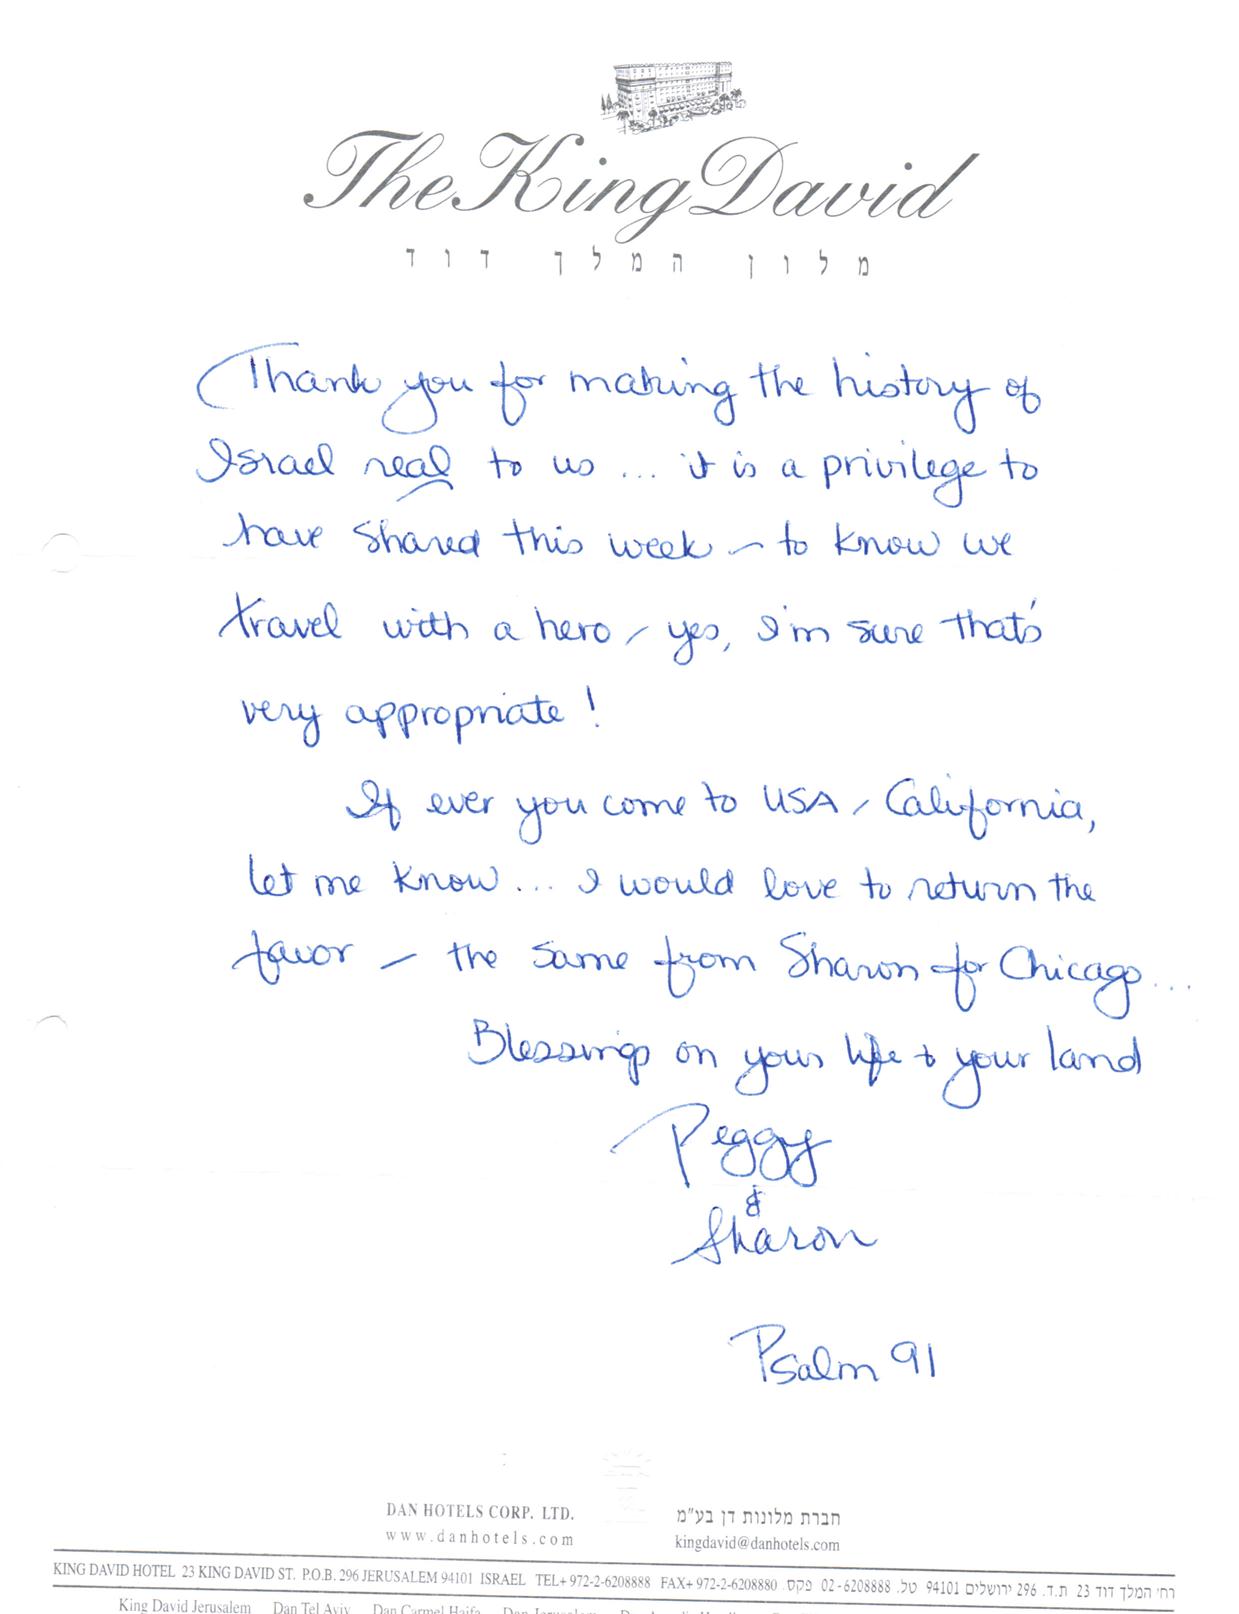 The King David
מלון המלך דוד
Thank you for making the history of
Israel real to us ... it is a privilege to
have shared this week – to know we
travel with a hero – yes, I'm sure that's
very appropriate!
If ever you come to USA / California,
let me know... I would love to return the
favor – the same from Sharon for Chicago...
Blessings on your life & your land
Peggy
&
Sharon
Psalm 91
DAN HOTELS CORP. LTD.
חברת מלונות דן בע"מ
www.danhotels.com
kingdavid@danhotels.com
KING DAVID HOTEL 23 KING DAVID ST. P.O.B. 296 JERUSALEM 94101 ISRAEL TEL+ 972-2-6208888 FAX+ 972-2-6208880 רח' המלך דוד 23 ת.ד. 296 ירושלים 94101 טל. 02-6208888 פקס.
King David Jerusalem Dan Tel Aviv Dan Carmel Haifa